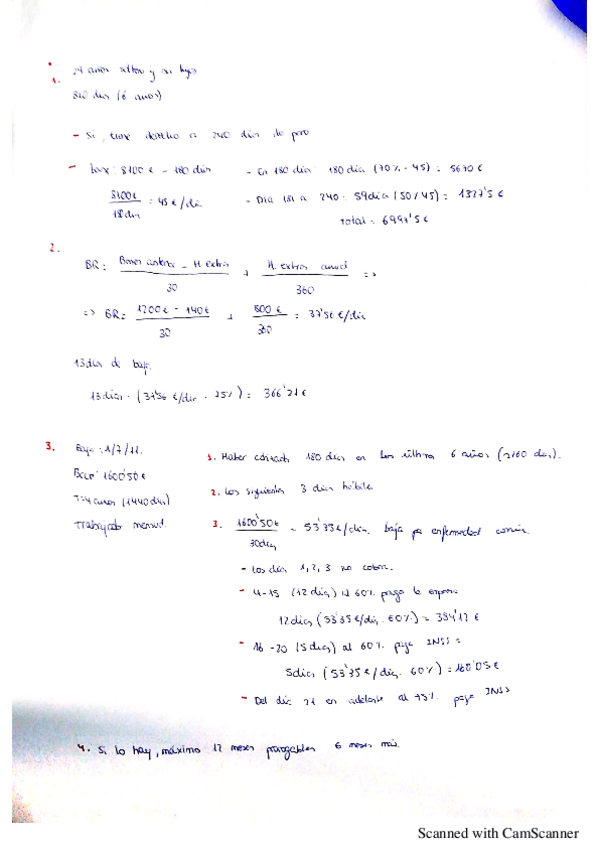 1. 24 años y
810 días (6 años)
- Si, tiene derecho a 240 días de paro
- base: 8100 € - 180 días - En 180 día 180 día (70% · 45) : 5670 €
8100€ / 18 días = 45 €/día - Dia 181 a 240 : 59 día (50 / 45) : 1327'5 €
Total = 6997'5 €
2.
BR: - H. extras / 30 + H. extras / 360 =>
=> BR: 1200 € - 140 € / 30 + 800 € / 360 : 37'56 €/día
13 días de baja.
13 días · (37'56 €/día · 75%) : 366'21 €
3. Baja: 1/7/11. 1. Haber cotizado 180 días en los últimos 6 años (2160 días).
Base: 1600'50 € 2. Los siguientes 3 días hábiles
T: 4 años (1440 días) 3. 1600'50€ / 30 días = 53'35 €/día. baja por enfermedad común.
Trabajador mensual.
- Los día 1, 2, 3 no cobra.
- 4-15 (12 días) al 60% paga la empresa
12 días (53'35 €/día · 60%) = 384'12 €
- 16-20 (5 días) al 60% paga INSS =
5 días (53'35 €/día · 60%) = 160'05 €
- Del día 21 en adelante al 75% paga INSS
4. Si lo hay, máximo 12 meses prorrogables 6 meses más.
Scanned with CamScanner